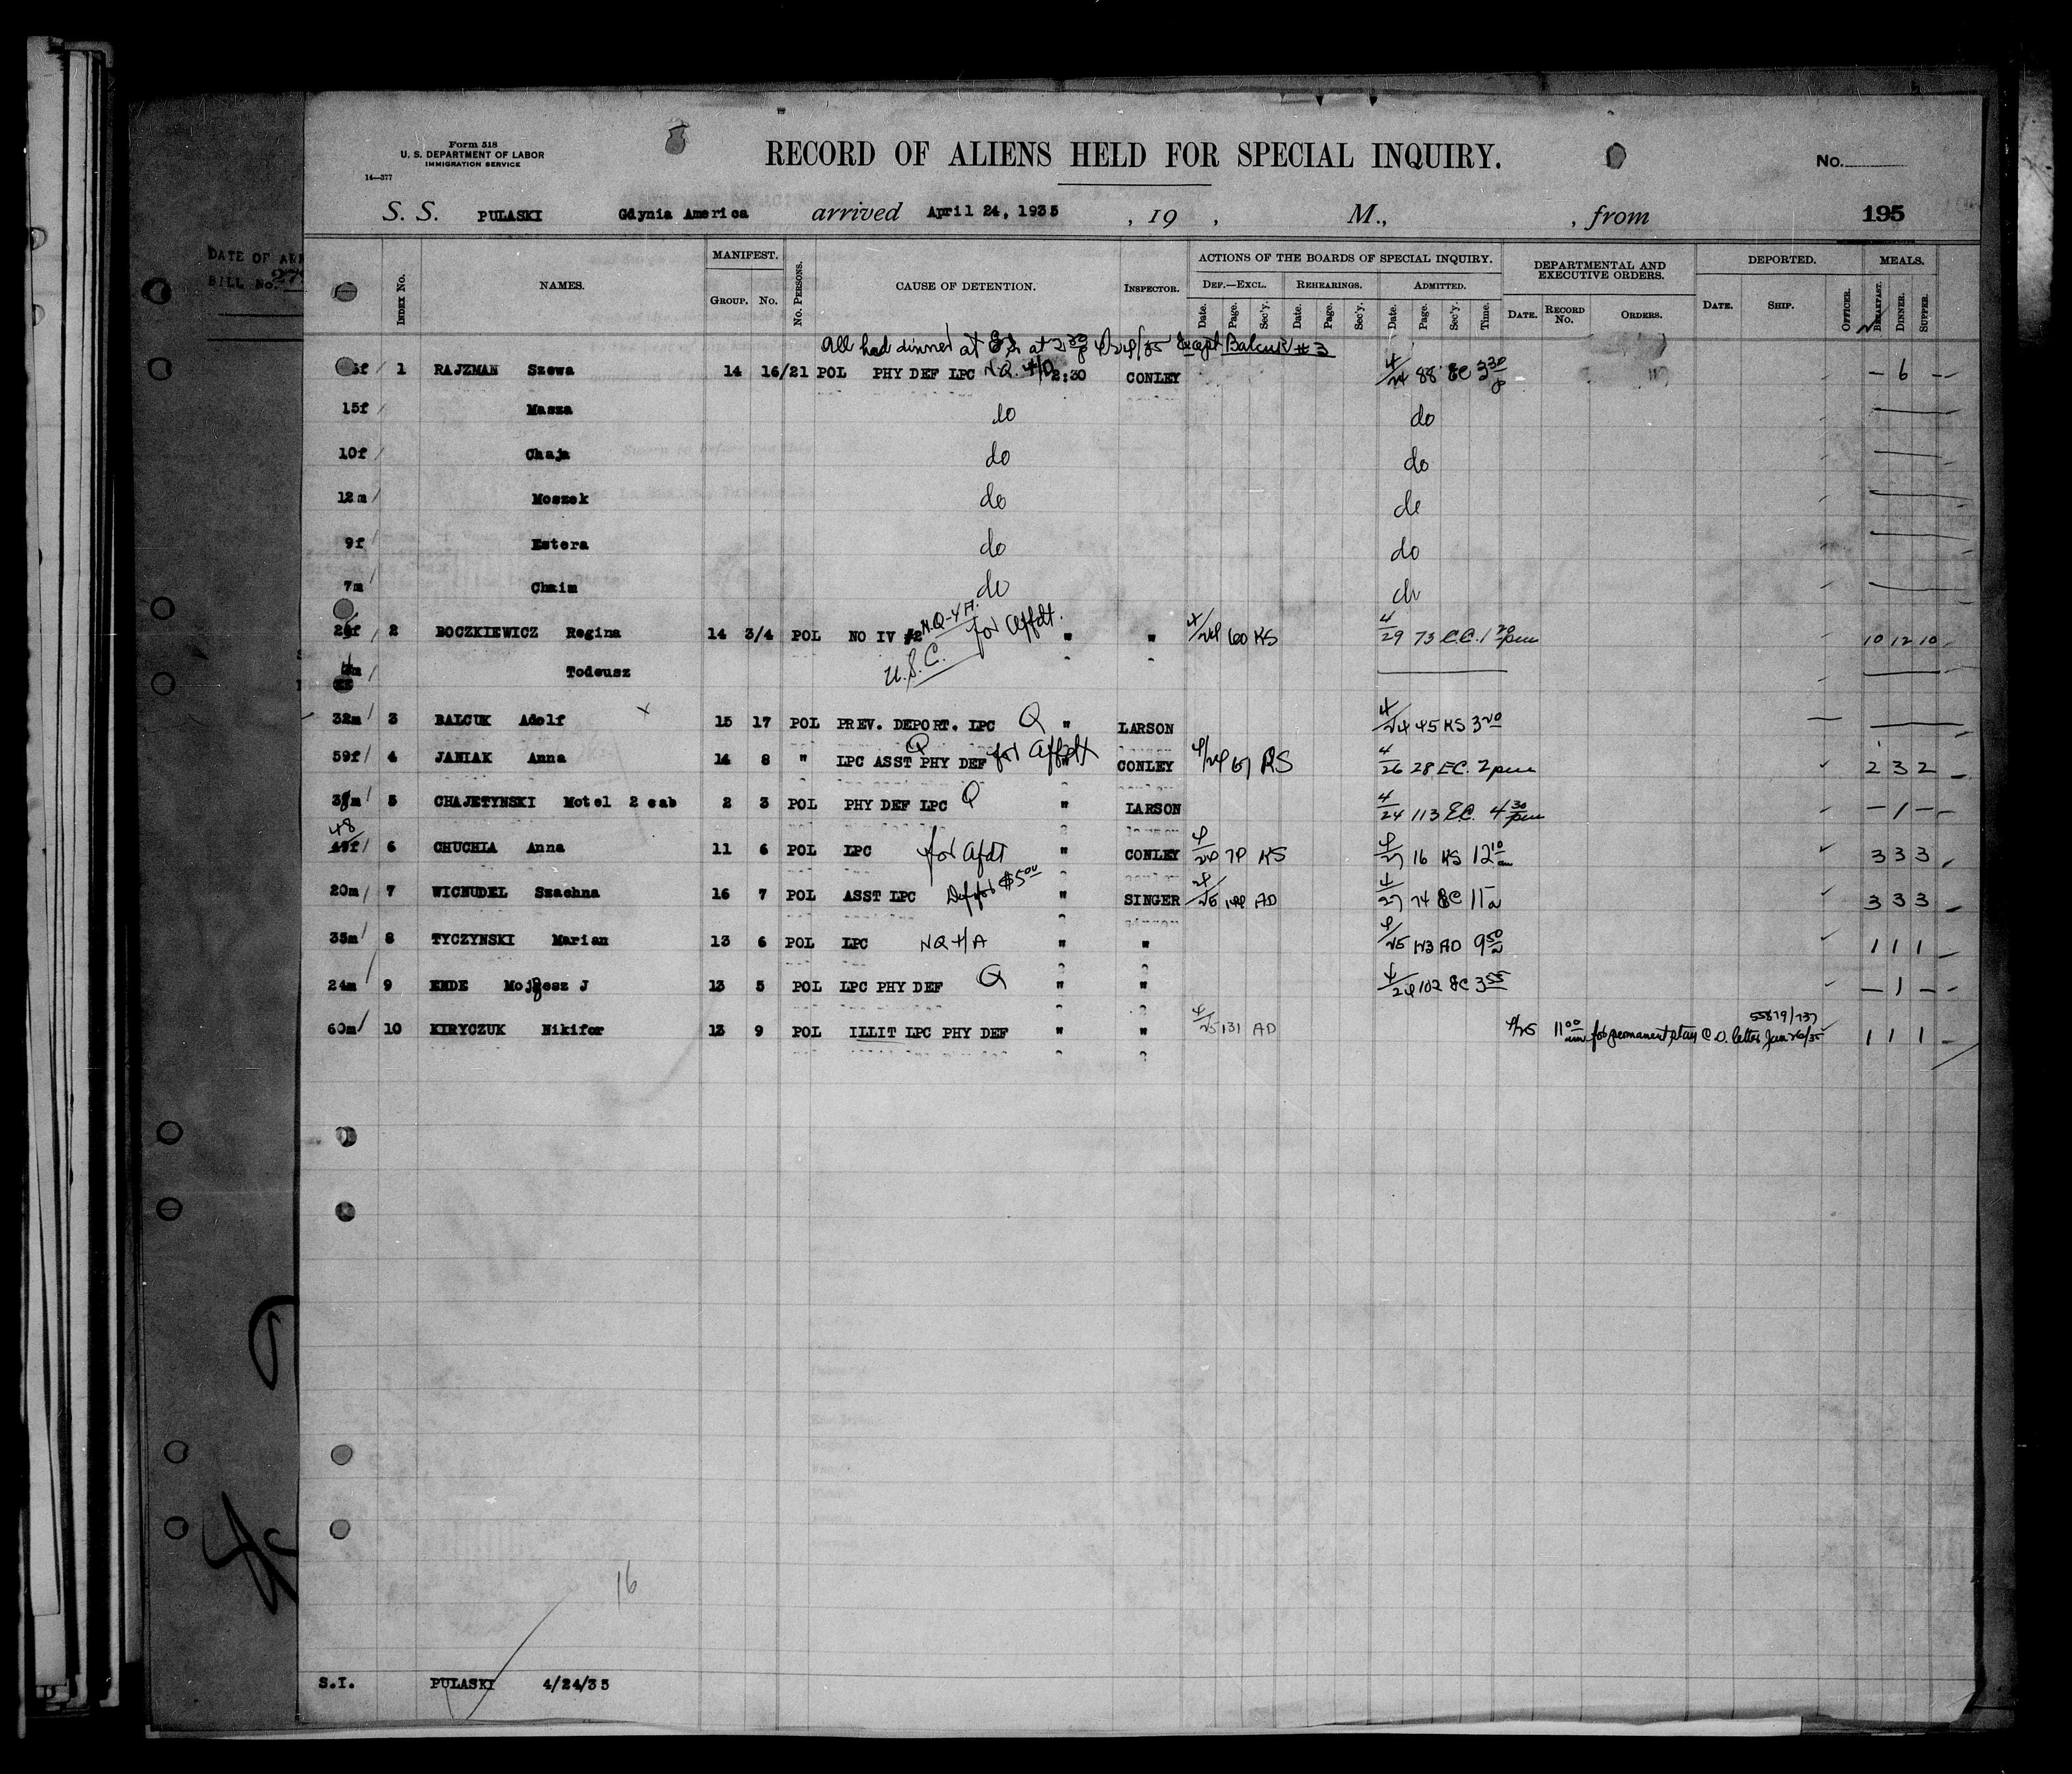 DATE OF ARR
BILL No. 27
Form 518
U. S. DEPARTMENT OF LABOR
IMMIGRATION SERVICE
14—377
RECORD OF ALIENS HELD FOR SPECIAL INQUIRY.
No.
S. S. PULASKI Gdynia America arrived April 24, 1935 , 19 , M., , from 195
INDEX No. NAMES. MANIFEST. GROUP. No. No. PERSONS. CAUSE OF DETENTION. INSPECTOR. ACTIONS OF THE BOARDS OF SPECIAL INQUIRY. DEPARTMENTAL AND EXECUTIVE ORDERS. DEPORTED. MEALS.
DEF.—EXCL. REHEARINGS. ADMITTED.
Date. Page. Sec'y. Date. Page. Sec'y. Date. Page. Sec'y. Time. DATE. RECORD No. ORDERS. DATE. SHIP. OFFICER. BREAKFAST. DINNER. SUPPER.
All had dinner at at 2 30 p 4/24/35 Except Balcuk #3
1 RAJZMAN Szewa 14 16/21 POL PHY DEF LPC 2:30 CONLEY 4/24 88 3 30 p — 6 —
15f Masza do do
10f Chaja do do
12m Moszek do do
9f Estera do do
7m Chaim do do
2 BOCZKIEWICZ Regina 14 3/4 POL NO IV for affdt. " " 4/24 60 KS 4/29 73 E.C. 1 pm 10 12 10
Todeusz U.S.C.
32m 3 BALCUK Adolf x 15 17 POL PREV. DEPORT. LPC Q " LARSON 4/24 45 KS 3 20
59f 4 JANIAK Anna 14 8 " LPC ASST PHY DEF Q for affdt " CONLEY 4/24 67 KS 4/26 28 E.C. 2 pm 2 3 2
5 CHAJETYNSKI Motel 2 cab 2 3 POL PHY DEF LPC Q " LARSON 4/24 113 E.C. 4 30 pm — 1 —
48
6 CHUCHLA Anna 11 6 POL LPC for Afdt " CONLEY 4/24 74 KS 4/27 16 KS 12 10 3 3 3
20m 7 WICNUDEL Szachna 16 7 POL ASST LPC $5 00 " SINGER 4/25 144 AD 4/27 74 11 a 3 3 3
35m 8 TYCZYNSKI Marian 13 6 POL LPC NQ " " 4/25 AD 9 50 a 1 1 1
24m 9 ENDE Mojzesz J 13 5 POL LPC PHY DEF Q " " 4/24 102 3 55 — 1 —
60m 10 KIRYCZUK Nikifor 13 9 POL ILLIT LPC PHY DEF " " 4/25 131 AD 4/25 11 00 am for permanent stay C.O. letter Jan 26/35 55879/737 1 1 1
16
S.I. PULASKI 4/24/35